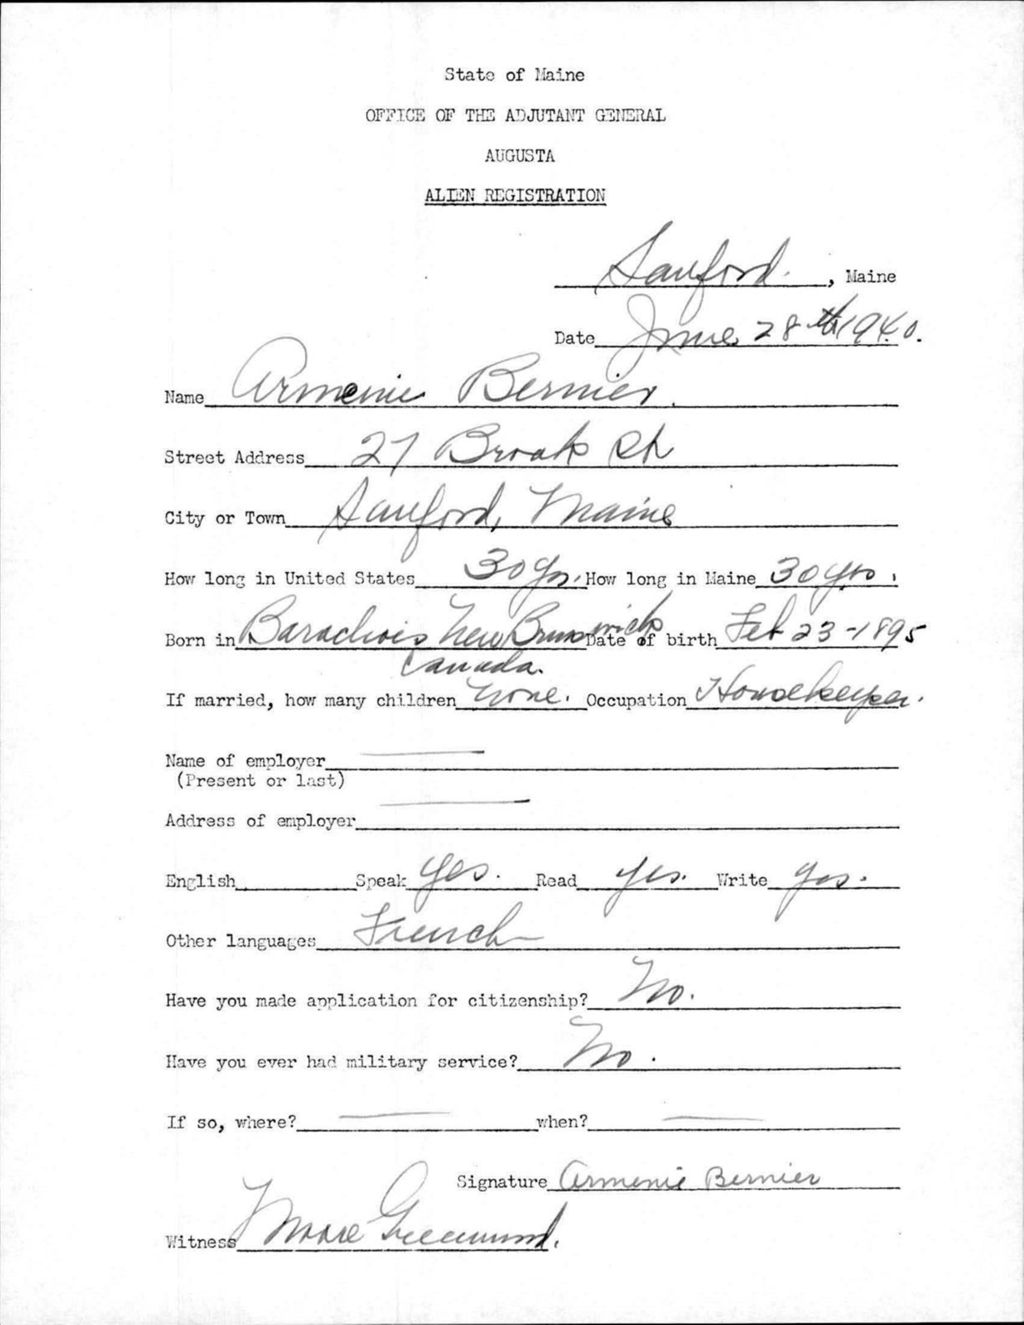 State of Maine
OFFICE OF THE ADJUTANT GENERAL
AUGUSTA
ALIEN REGISTRATION
Sanford. , Maine
Date June 28th 1940.
Name Armenie Bernier.
Street Address 27 Brook St
City or Town Sanford, Maine
How long in United States 30 yrs. How long in Maine 30 yrs.
Born in Barachois New Brunswick Date of birth Feb 23-1895
Canada.
If married, how many children none. Occupation Housekeeper.
Name of employer
(Present or last)
Address of employer
English Speak Yes. Read Yes. Write Yes.
Other languages French
Have you made application for citizenship? No.
Have you ever had military service? No.
If so, where? when?
Signature Armenie Bernier
Witness